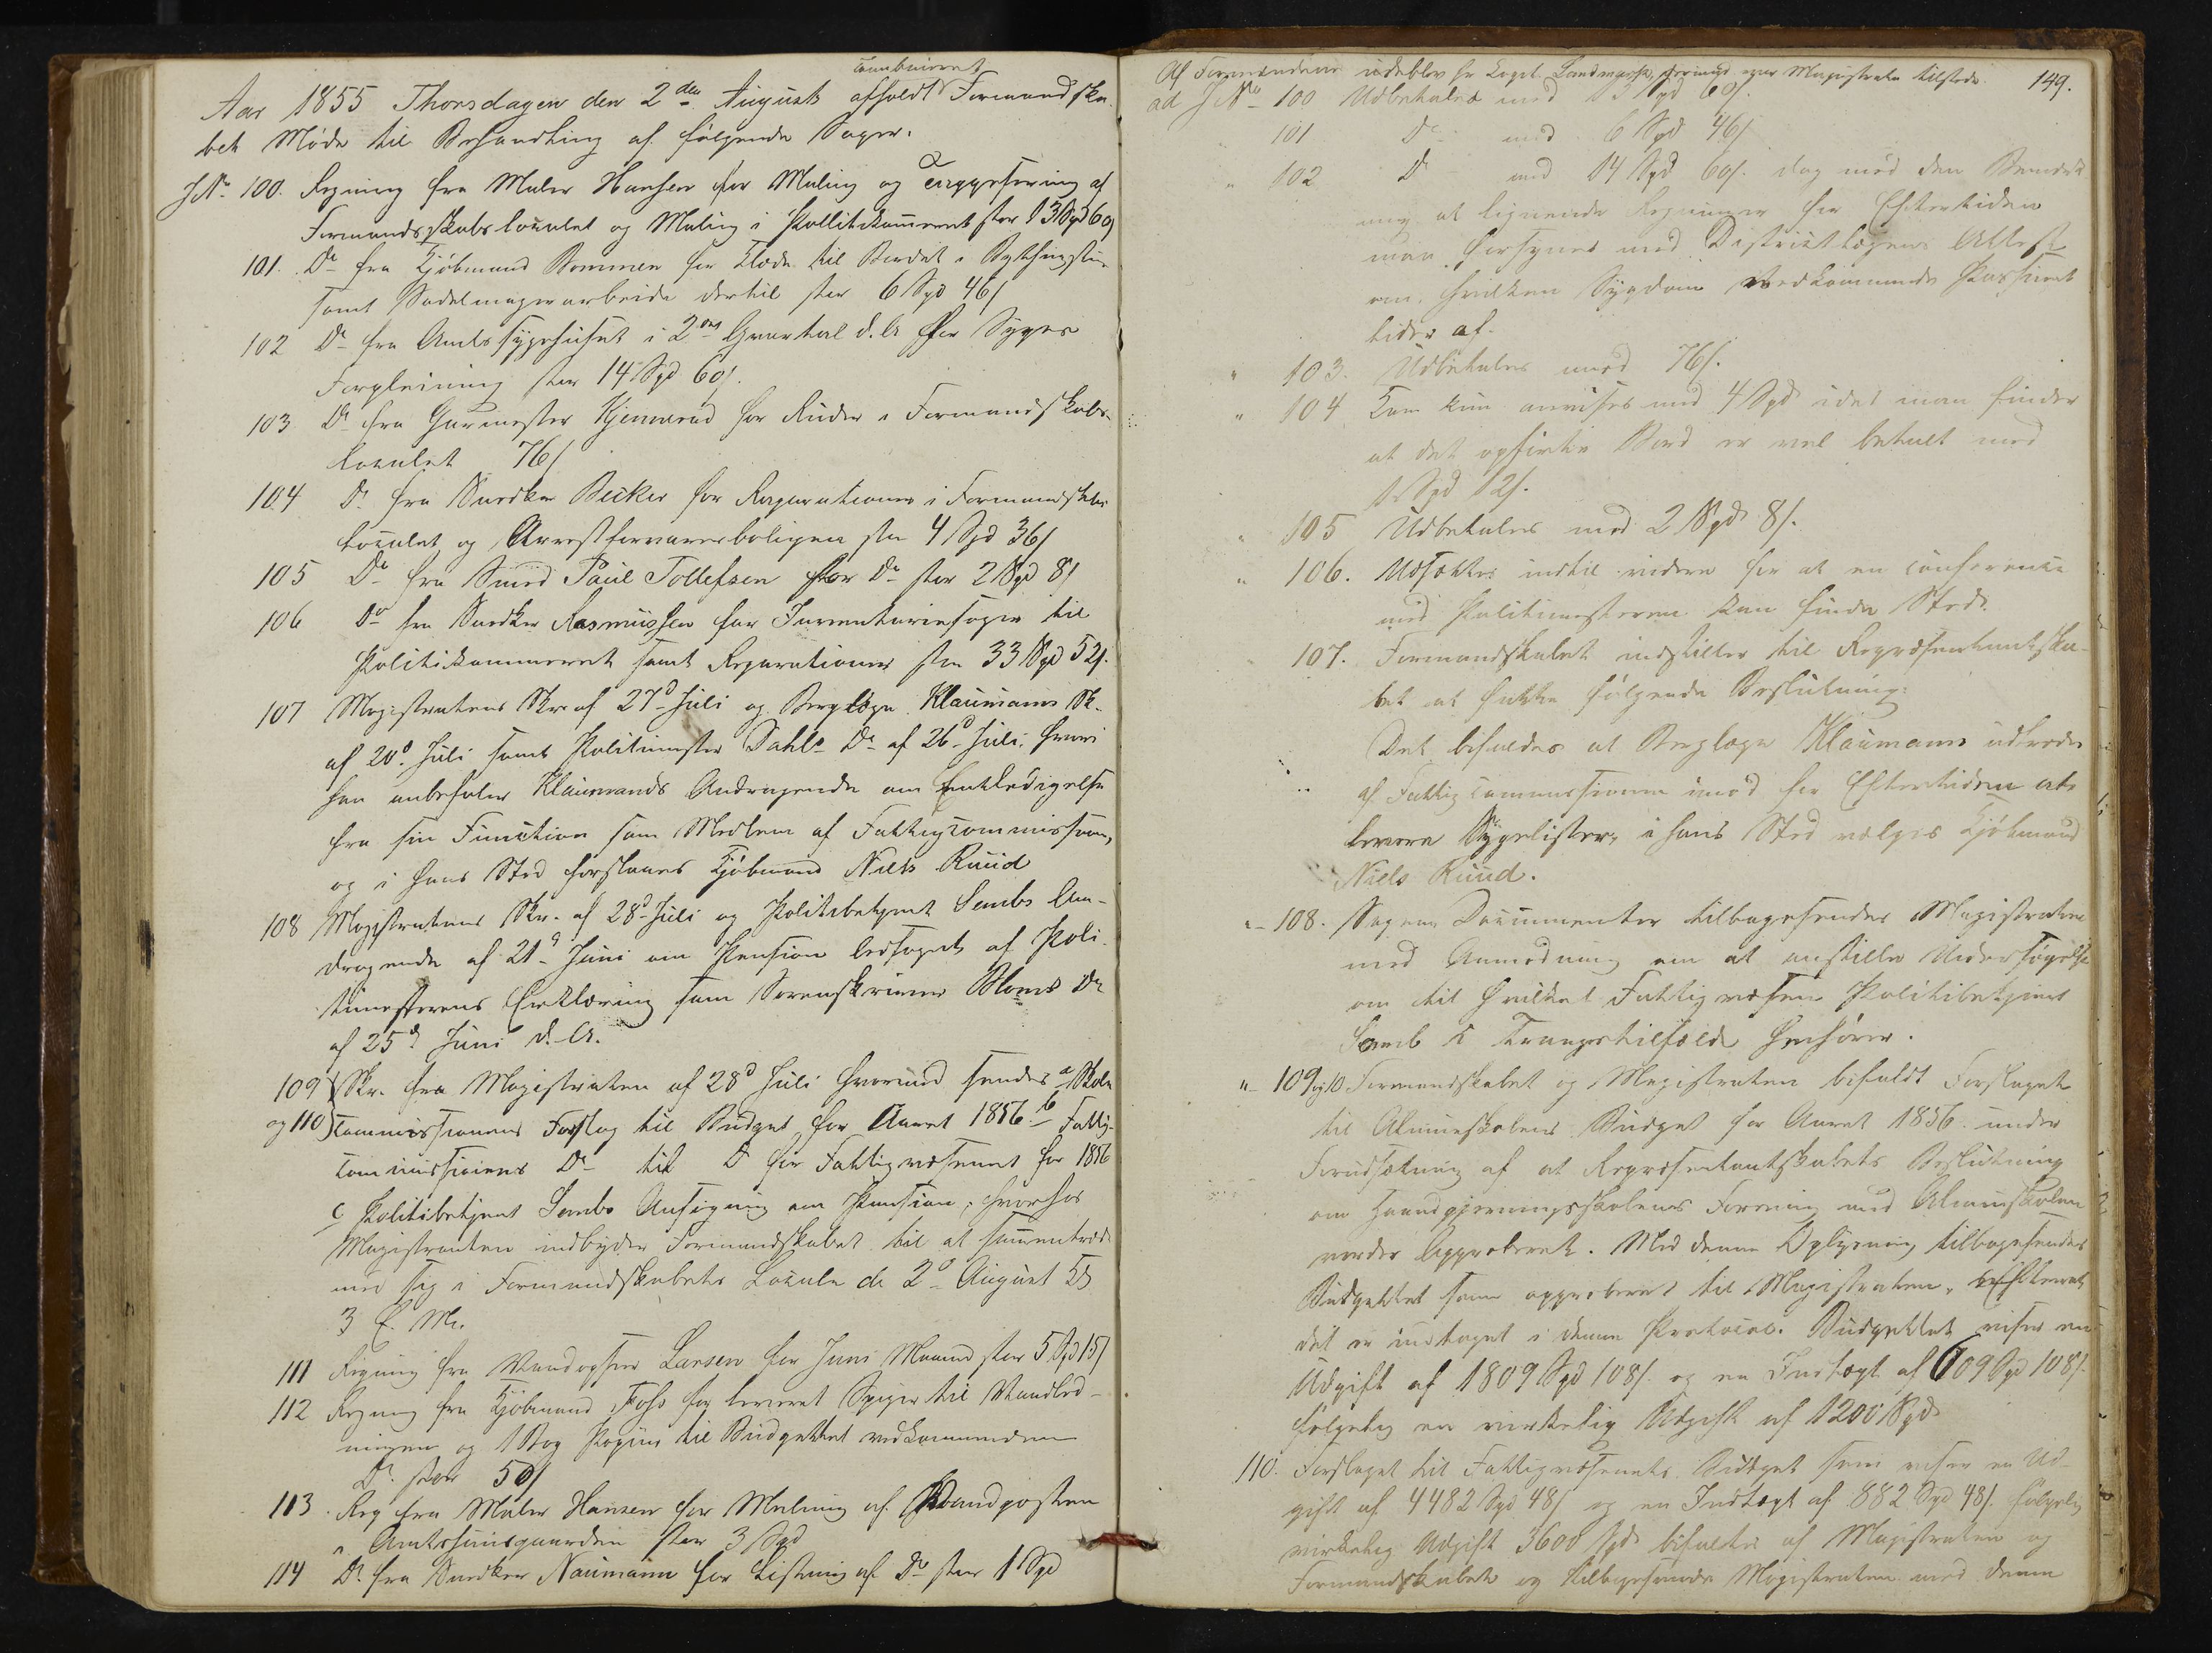 combineret
Aar 1855 Thorsdagen den 2den August afholdt Formandska-
bet Møde til Behandling af følgende Sager.
J.No 100. Regning fra Maler Hansen for Maling og Tapetsering af
Formandsskabslocalet og Maling i Pollitikameret stor 13 Spd 60
101. Do fra Kjøbmand Bommen for Klæde til Bordet i Bythingstu
samt Sadelmagerarbeide dertil stor 6 Spd 46/
102 Do fra Amtssygehuset i 2det Qvartal d. A. for Syges
Forpleining stor 14 Spd 60/.
103 Do fra Garmester Kjennerud for Ruder i Formandskabs-
localet 76/
104 Do fra Snedker Becker for Reparationer i Formandskabs
localet og Arrestforvarerboligen stor 4 Spd 36/
105 Do fra Smed Paul Tollefsen for Do stor 2 Spd 8/
106 Do fra Snedker Rasmussen for Inventariesager til
Politikammeret samt Reparationer stor 33 Spd 52/.
107 Magistratens Skr. af 27d Juli og Berglæge Klaumanns Sk.
af 20d Juli samt Politimester Dahls Do af 26d Juli, hvori
han anbefaler Klaumands Andragende om Entledigelse
fra sin Function som Medlem af Fattigcommissionen,
og i hans Sted forslaaes Kjøbmand Niels Ruud
108 Magistratens Skr. af 28d Juli og Politibetjent Sembs An-
dragende af 21d Juni om Pension ledsaget af Poli-
timesterens Erklæring som Sorenskriver Bloms Do
af 25d Juni d. A.
109 Skr. fra Magistraten af 28d Juli hvormed sendes a Skole
og 110 Commissionens Forslag til Budget for Aaret 1856 b Fattig-
commissionens Do til Do for Fattigvæsenet for 1856
c Politibetjent Sembs Ansøgning om Pension, hvorhos
Magistraten indbyder Formandskabet til at sammentræde
med sig i Formandskabets Locale d. 2d August Kl
3 E. M.
111 Regning fra Vandopsyn Larsen for Juni Maaned stor 5 Spd 15/
112 Regning fra Kjøbmand Foss for leveret Spiger til Vandled-
ningen og 1 Bog Papiir til Budgettet vedkommende
Do stor 50/
113. Reg fra Maler Hansen for Maling af Vandposten
i Amtshuusgaarden stor 3 Spd
114 Do fra Snedker Naumann for Listning af Do stor 1 Spd
Af Formændene udeblev Hr Capt. Landmark, forøvrigt var Magistraten tilstede. 149.
ad J No 100 Udbetales med 13 Spd 60/.
101 Do med 6 Spd 46/
" 102 Do med 14 Spd 60/. dog med den Bemærk
ning at lignende Regninger for Eftertiden
maa forsynes med Districtslægens Attest
om, hvilken Sygdom vedkommende Patient
lider af.
" 103. Udbetales med 76/.
" 104 Kan kun anvises med 4 Spd idet man finder
at det opførte Bord er vel betalt med
1 Spd 12/.
" 105 Udbetales med 2 Spd 8/.
" 106. Udsættes indtil videre for at en Conferense
med Politimesteren kan finde Sted.
107. Formandskabet indstiller til Repræsentantska-
bet at fatte følgende Beslutning:
Det bifaldes at Berglæge Klaumann udtræder
af Fattigcommissionen imod for Eftertiden at
levere Sygelister, i hans Sted vælges Kjøbmand
Niels Ruud.
" 108. Sagens Documenter tilbagesendes Magistraten
med Anmodning om at anstille Undersøgelse
om til hvilket Fattigvæsen Politibetjent
Semb i Trangstilfælde henhører.
" 109 og 10 Formandskabet og Magistraten bifaldt Forslaget
til Almueskolens Budget for Aaret 1856 under
Forudsætning af at Repræsentantskabets Beslutning
om Haandgjerningsskolens Forening med Almueskolen
vorder Approberet. Med denne Oplysning tilbagesendes
Budgettet som approberet til Magistraten, efterat
det er indtaget i denne Protocol. Budgettet viser en
Udgift af 1809 Spd 108/. og en Indtægt af 609 Spd 108/.
følgelig en virkelig Udgift af 1200 Spd
110. Forslaget til Fattigvæsenets Budget som viser en Ud-
gift af 4482 Spd 48/ og en Indtægt af 882 Spd 48/. følgelig
virkelig Udgift 3600 Spd bifaldtes af Magistraten og
Formandskabet og tilbagesendes Magistraten med denne